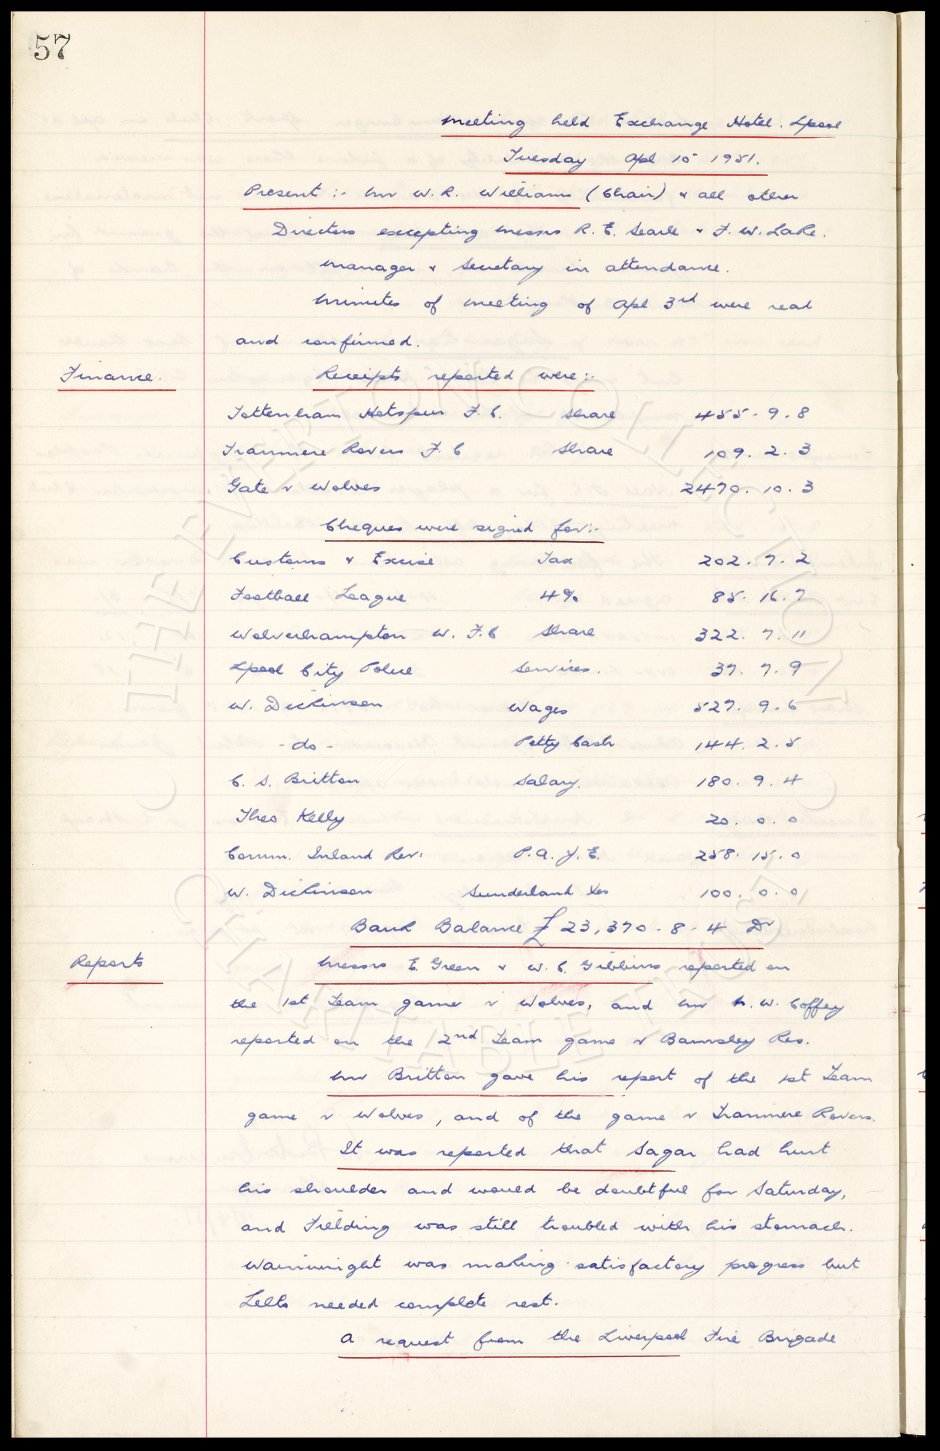 57
Meeting held Exchange Hotel. Lpool
Tuesday Apl 10 1951.
Present :- Mr W. R. Williams (Chair) & all other
Directors excepting Messrs R. E. Searle & F. W. Lake.
Manager & Secretary in attendance.
Minutes of meeting of Apl 3rd were read
and confirmed.
Finance. Receipts reported were:-
Tottenham Hotspur F. C. Share 455. 9. 8
Tranmere Rovers F. C Share 109. 2. 3
Gate v Wolves 2470. 10. 3
Cheques were signed for:-
Customs & Excise Tax 202. 7. 2
Football League 4% 85. 16. 7
Wolverhampton W. F. C Share 322. 7. 11
Lpool City Police Services. 37. 7. 9
W. Dickinson Wages 527. 9. 6
- do - Petty Cash 144. 2. 5
C. S. Britton Salary. 180. 9. 4
Theo Kelly 20. 0. 0
Comm. Inland Rev: P. A. Y. E. 258. 15. 0
W. Dickinson Sunderland Xes 100. 0. 0
Bank Balance £23,370 - 8 - 4 Dr
Reports Messrs E. Green & W. C. Gibbins reported on
the 1st Team game v Wolves, and Mr W. Coffey
reported on the 2nd Team game v Barnsley Res.
Mr Britton gave his report of the 1st Team
game v Wolves, and of the game v Tranmere Rovers.
It was reported that Sagar had hurt
his shoulder and would be doubtful for Saturday,
and Fielding was still troubled with his stomach.
Wainwright was making satisfactory progress but
Lello needed complete rest.
A request from the Liverpool Fire Brigade
THE EVERTON COLLECTION
CHARITABLE TRUST